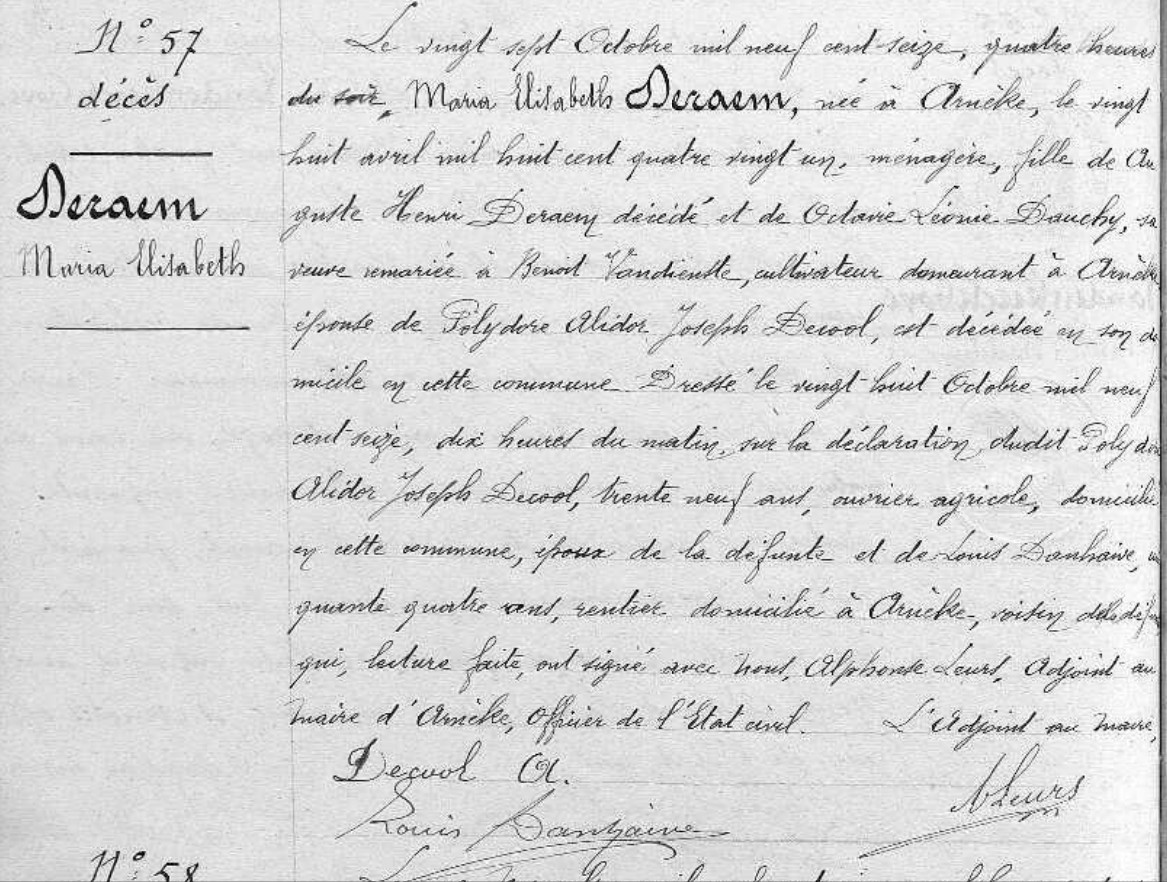 N° 57
décès
Deraem
Maria Elisabeth
Le vingt sept Octobre mil neuf cent-seize, quatre heures
du soir, Maria Elisabeth Deraem, née à Arnèke, le vingt
huit avril mil huit cent quatre vingt un, ménagère, fille de Au
guste Henri Deraem décédé et de Octavie Léonie Dauchy, sa
veuve remariée à Benoit Vandienste, cultivateur domeurant à Arnèke
épouse de Polydore Alidor Joseph Decool, est décédée en son do
micile en cette commune Dressé le vingt-huit Octobre mil neuf
cent seize, dix heures du matin, sur la déclaration dudit Polydore
Alidor Joseph Decool, trente neuf ans, ouvrier agricole, domicilié
en cette commune, époux de la défunte et de Louis Danhaive,
quante quatre ans, rentier domicilié à Arnèke, voisin
qui, lecture faite, ont signé avec nous, Alphonse Leurs, Adjoint au
maire d'Arnèke, Officier de l'Etat civil. L'Adjoint au maire,
Decool A.
ALeurs
Louis Danhaive
N° 58